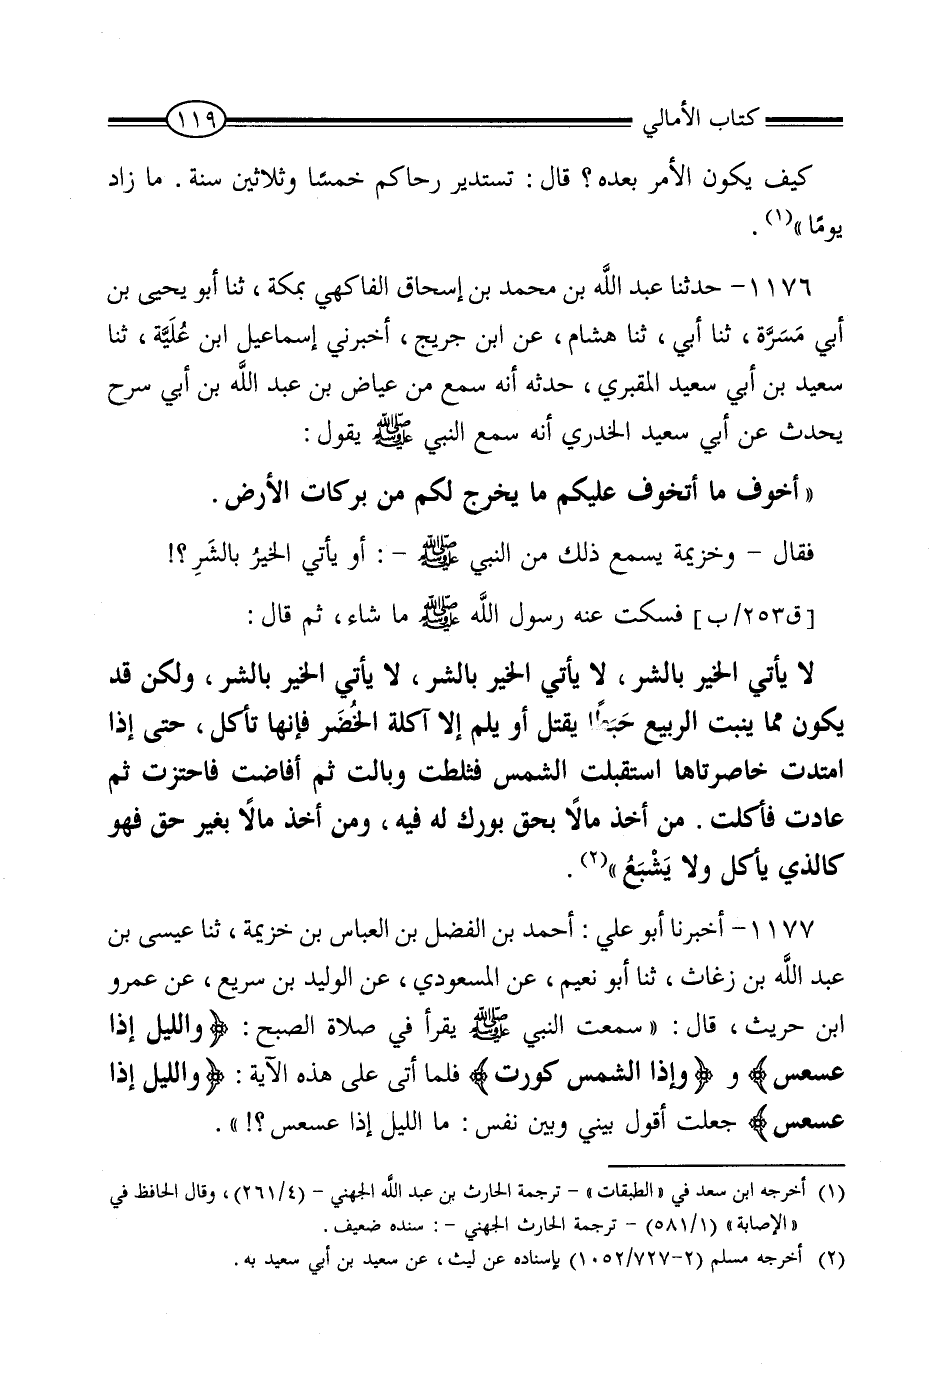 كتاب الأمالي ١١٩
كيف يكون الأمر بعده؟ قال: تستدير رحاكم خمسًا وثلاثين سنة. ما زاد
يومًا»(١).
١١٧٦- حدثنا عبد اللَّه بن محمد بن إسحاق الفاكهي بمكة، ثنا أبو يحيى بن
أبي مَسَرَّة، ثنا أبي، ثنا هشام، عن ابن جريج، أخبرني إسماعيل ابن عُلَيَّة، ثنا
سعيد بن أبي سعيد المقبري، حدثه أنه سمع من عياض بن عبد اللَّه بن أبي سرح
يحدث عن أبي سعيد الخدري أنه سمع النبي ﷺ يقول:
«أخوف ما أتخوف عليكم ما يخرج لكم من بركات الأرض.
فقال - وخزيمة يسمع ذلك من النبي ﷺ -: أو يأتي الخيرُ بالشَرِ؟!
[ق٢٥٣/ب] فسكت عنه رسول اللَّه ﷺ ما شاء، ثم قال:
لا يأتي الخير بالشر، لا يأتي الخير بالشر، لا يأتي الخير بالشر، ولكن قد
يكون مما ينبت الربيع حَبَطًا يقتل أو يلم إلا آكلة الخُضَر فإنها تأكل، حتى إذا
امتدت خاصرتاها استقبلت الشمس فثلطت وبالت ثم أفاضت فاحتزت ثم
عادت فأكلت. من أخذ مالًا بحق بورك له فيه، ومن أخذ مالًا بغير حق فهو
كالذي يأكل ولا يَشْبَعُ»(٢).
١١٧٧- أخبرنا أبو علي: أحمد بن الفضل بن العباس بن خزيمة، ثنا عيسى بن
عبد اللَّه بن زغاث، ثنا أبو نعيم، عن المسعودي، عن الوليد بن سريع، عن عمرو
ابن حريث، قال: «سمعت النبي ﷺ يقرأ في صلاة الصبح: ﴿والليل إذا
عسعس﴾ و ﴿وإذا الشمس كورت﴾ فلما أتى على هذه الآية: ﴿والليل إذا
عسعس﴾ جعلت أقول بيني وبين نفس: ما الليل إذا عسعس؟!».
(١) أخرجه ابن سعد في «الطبقات» - ترجمة الحارث بن عبد اللَّه الجهني - (٢٦١/٤)، وقال الحافظ في
«الإصابة» (٥٨١/١) - ترجمة الحارث الجهني -: سنده ضعيف.
(٢) أخرجه مسلم (٢-١٠٥٢/٧٢٧) بإسناده عن ليث، عن سعيد بن أبي سعيد به.